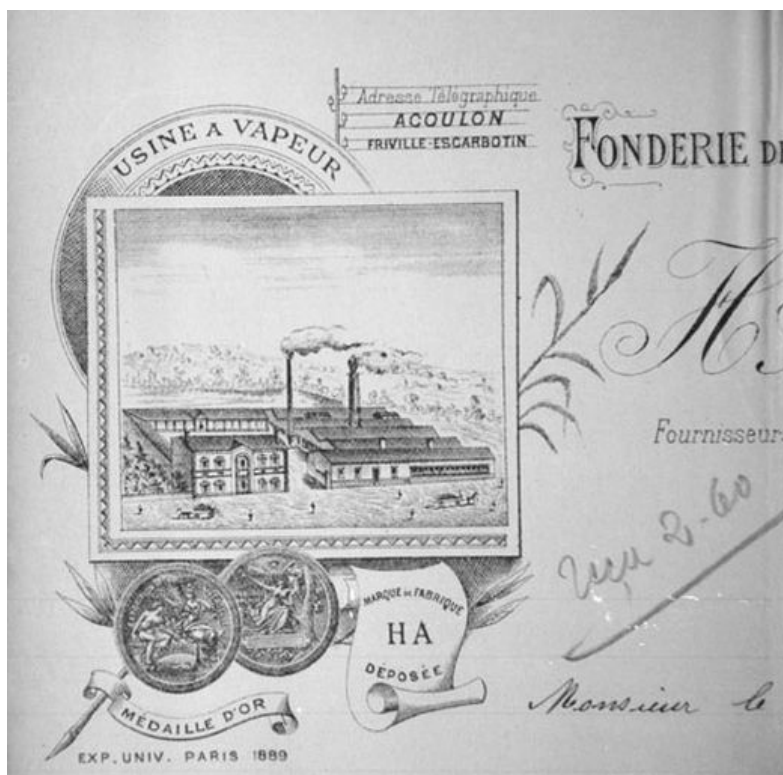 Adresse Télégraphique
ACOULON
FRIVILLE-ESCARBOTIN
USINE A VAPEUR
FONDERIE DE
H
Fournisseur
reçu 2-60
MARQUE DE FABRIQUE
HA
DÉPOSÉE
Monsieur le
MÉDAILLE D'OR
EXP. UNIV. PARIS 1889